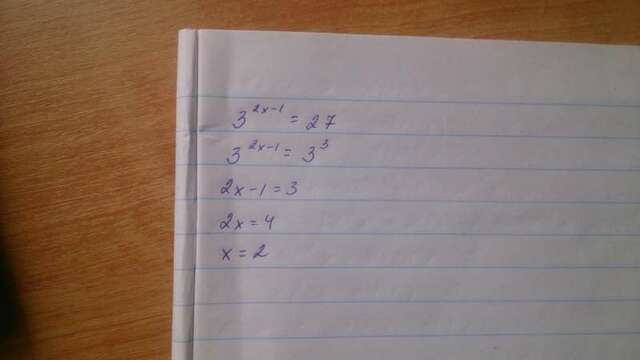 3^{2x-1} = 27
3^{2x-1} = 3^3
2x-1=3
2x=4
x=2